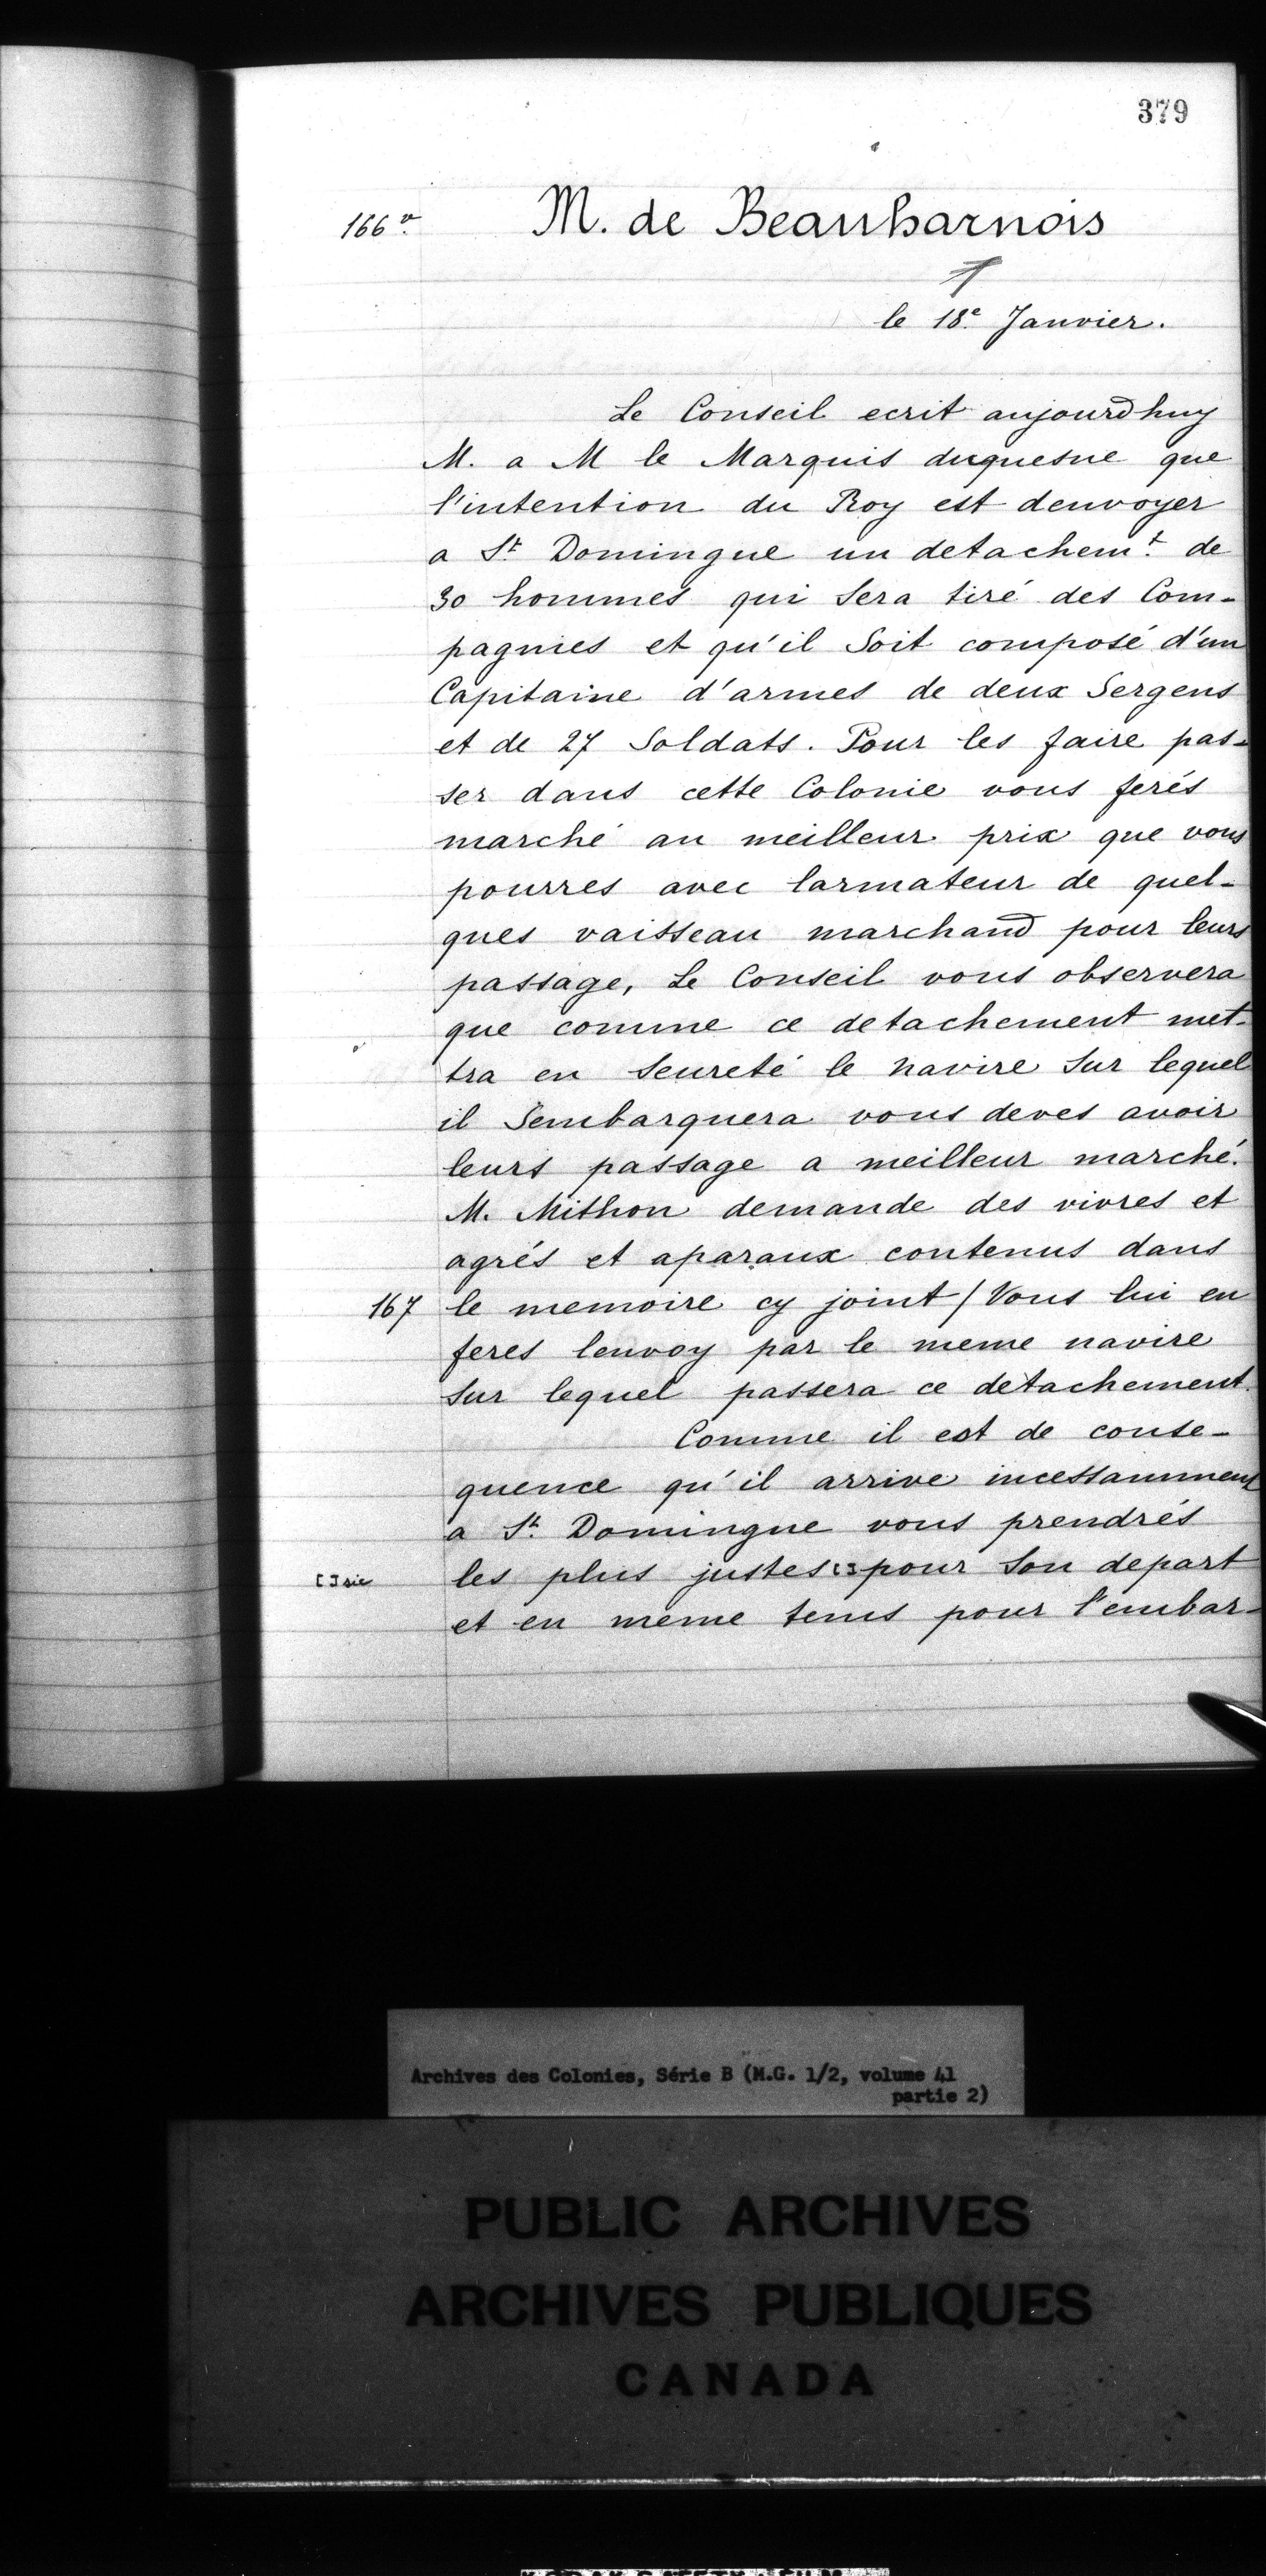 379
166 v. M. de Beauharnois
le 18e Janvier.
Le Conseil ecrit aujourdhuy
M. a M le Marquis duquesne que
l'intention du Roy est denvoyer
a St Domingue un detachemt de
30 hommes qui Sera tiré des Com-
pagnies et qu'il Soit composé d'un
Capitaine d'armes de deux Sergens
et de 27 Soldats. Pour les faire pas-
ser dans cette Colonie vous ferés
marché au meilleur prix que vous
pourres avec larmateur de quel-
ques vaisseau marchand pour leurs
passage, Le Conseil vous observera
que comme ce detachement met-
tra en Seureté le navire Sur lequel
il Sembarquera vous deves avoir
leurs passage a meilleur marché.
M. Mithon demande des vivres et
agrés et aparaux contenus dans
167 le memoire cy joint / Vous lui en
feres lenvoy par le meme navire
Sur lequel passera ce detachement.
Comme il est de conse-
quence qu'il arrive incessamment
a St Domingue vous prendrés
[ ] sic les plus justes [ ] pour Son depart
et en meme tems pour l'embar-
Archives des Colonies, Série B (M.G. 1/2, volume 41
partie 2)
PUBLIC ARCHIVES
ARCHIVES PUBLIQUES
CANADA